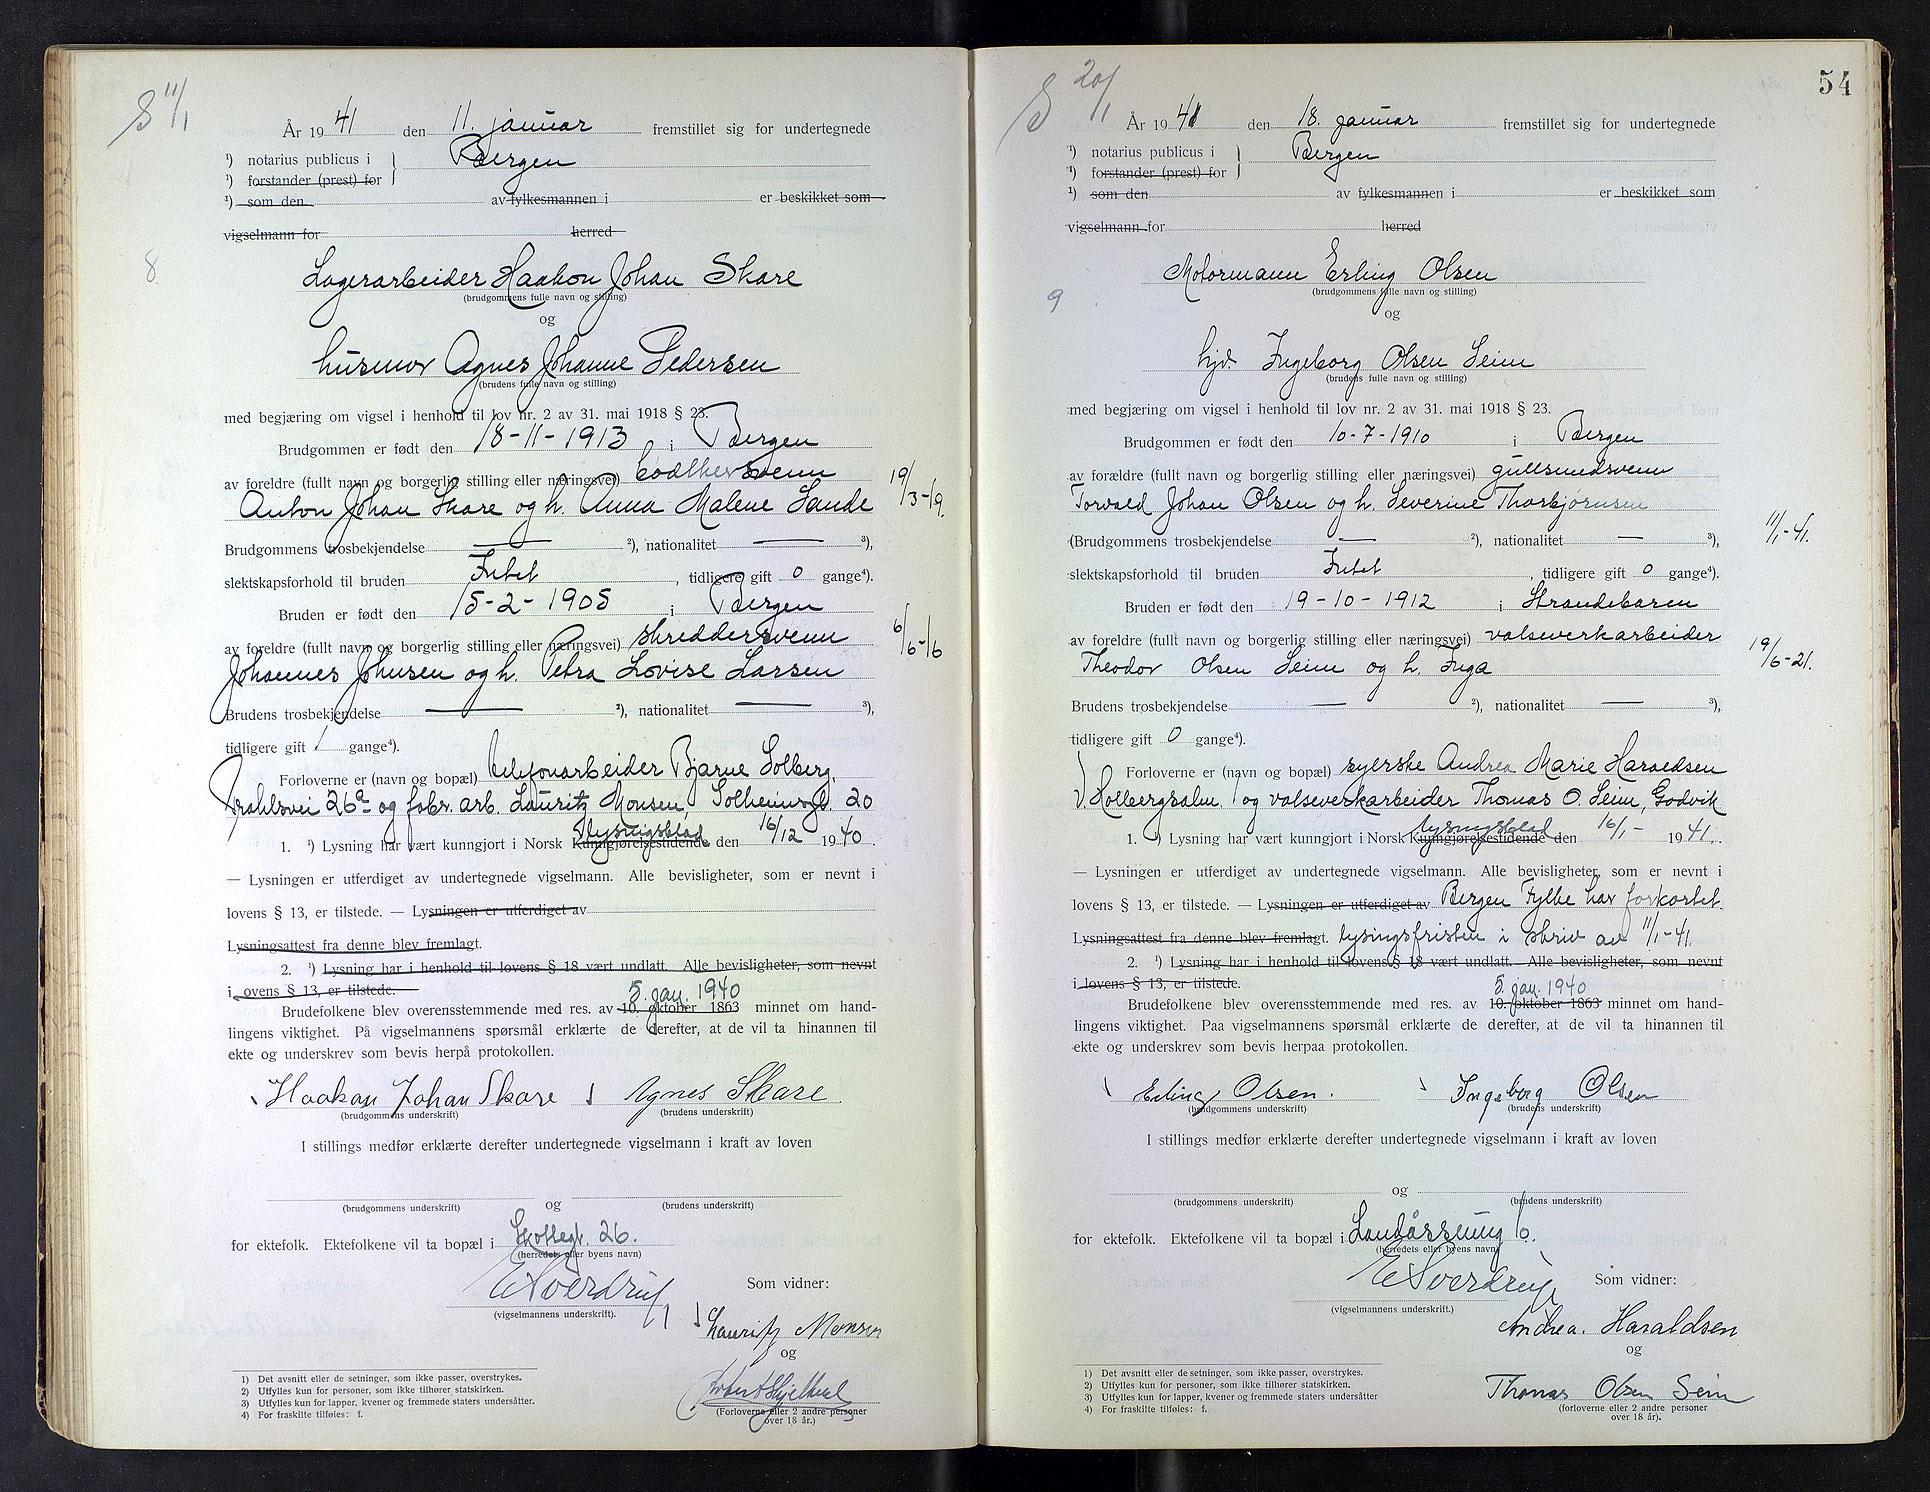 S 11/1
År 1941 den 11. januar fremstillet sig for undertegnede
¹) notarius publicus i } Bergen
¹) forstander (prest) for
¹) som den av fylkesmannen i er beskikket som
vigselmann for herred
8.
Lagerarbeider Haakon Johan Skare
(brudgommens fulle navn og stilling)
og
husmor Agnes Johanne Pedersen
(brudens fulle navn og stilling)
med begjæring om vigsel i henhold til lov nr. 2 av 31. mai 1918 § 23.
Brudgommen er født den 18-11-1913 i Bergen
av foreldre (fullt navn og borgerlig stilling eller næringsvei)
19/3-19.
Anton Johan Skare og h. Anna Malene Sande
Brudgommens trosbekjendelse — ²), nationalitet — ³),
slektskapsforhold til bruden Intet, tidligere gift 0 gange⁴).
Bruden er født den 15-2-1905 i Bergen
av foreldre (fullt navn og borgerlig stilling eller næringsvei) skreddersvenn
6/6-16
Johannes Johnsen og h. Petra Lovise Larsen
Brudens trosbekjendelse — ²), nationalitet — ³),
tidligere gift 1 gange⁴).
Forloverne er (navn og bopæl) telefonarbeider Bjarne Solberg,
26a og fabr. arb. Lauritz Monsen, Solheimsgt. 20
1. ¹) Lysning har vært kunngjort i Norsk Kunngjørelsestidende lysingsblad den 16/12 1940.
— Lysningen er utferdiget av undertegnede vigselmann. Alle bevisligheter, som er nevnt i
lovens § 13, er tilstede. — Lysningen er utferdiget av
Lysningsattest fra denne blev fremlagt.
2. ¹) Lysning har i henhold til lovens § 18 vært undlatt. Alle bevisligheter, som nevnt
i lovens § 13, er tilstede.
5. jan. 1940
Brudefolkene blev overensstemmende med res. av 10. oktober 1863 minnet om hand-
lingens viktighet. På vigselmannens spørsmål erklærte de derefter, at de vil ta hinannen til
ekte og underskrev som bevis herpå protokollen.
Haakon Johan Skare Agnes Skare
(brudgommens underskrift) (brudens underskrift)
I stillings medfør erklærte derefter undertegnede vigselmann i kraft av loven
og
(brudgommens underskrift) (brudens underskrift)
for ektefolk. Ektefolkene vil ta bopæl i Skottegt. 26.
(herredets eller byens navn)
E Sverdrup Som vidner:
(vigselmannens underskrift).
Lauritz Monsen
og
(Forloverne eller 2 andre personer
over 18 år.)
1) Det avsnitt eller de setninger, som ikke passer, overstrykes.
2) Utfylles kun for personer, som ikke tilhører statskirken.
3) Utfylles kun for lapper, kvener og fremmede staters undersåtter.
4) For fraskilte tilføies: f.
54
S 20/1
År 1941 den 18. januar fremstillet sig for undertegnede
¹) notarius publicus i } Bergen
¹) forstander (prest) for
¹) som den av fylkesmannen i er beskikket som
vigselmann for herred
9
Motormann Erling Olsen
(brudgommens fulle navn og stilling)
og
hjv. Ingeborg Olsen Seim
(brudens fulle navn og stilling)
med begjæring om vigsel i henhold til lov nr. 2 av 31. mai 1918 § 23.
Brudgommen er født den 10-7-1910 i Bergen
av forældre (fullt navn og borgerlig stilling eller næringsvei) gullsmedsvenn
Torvald Johan Olsen og h. Severine Thorbjørnsen
11/1-41.
(Brudgommens trosbekjendelse — ²), nationalitet — ³),
slektskapsforhold til bruden Intet, tidligere gift 0 gange⁴).
Bruden er født den 19-10-1912 i Strandebarm
av foreldre (fullt navn og borgerlig stilling eller næringsvei) valseverkarbeider
19/6-21.
Theodor Olsen Seim og h. Inga
Brudens trosbekjendelse — ²), nationalitet — ³),
tidligere gift 0 gange⁴).
Forloverne er (navn og bopæl) syerske Andrea Marie Haraldsen
Holbergsalm. 1 og valseverkarbeider Thomas O. Seim, Godvik
1. ¹) Lysning har vært kunngjort i Norsk Kunngjørelsestidende lysingsblad den 16/1- 1941.
— Lysningen er utferdiget av undertegnede vigselmann. Alle bevisligheter, som er nevnt i
lovens § 13, er tilstede. — Lysningen er utferdiget av Bergen Fylke har forkortet
Lysningsattest fra denne blev fremlagt. lysingsfristen i skriv av 11/1-41.
2. ¹) Lysning har i henhold til lovens § 18 vært undlatt. Alle bevisligheter, som nevnt
i lovens § 13, er tilstede.
5. jan. 1940
Brudefolkene blev overensstemmende med res. av 10. oktober 1863 minnet om hand-
lingens viktighet. Paa vigselmannens spørsmål erklærte de derefter, at de vil ta hinannen til
ekte og underskrev som bevis herpaa protokollen.
Erling Olsen. Ingeborg Olsen
(brudgommens underskrift) (brudens underskrift)
I stillings medfør erklærte derefter undertegnede vigselmann i kraft av loven
og
(brudgommens underskrift) (brudens underskrift)
for ektefolk. Ektefolkene vil ta bopæl i Landåssving 6.
(herredets eller byens navn)
E Sverdrup Som vidner:
(vigselmannens underskrift.)
Andrea. Haraldsen
og
Thomas Olsen Seim
(forloverne eller 2 andre personer
over 18 år).
1) Det avsnitt eller de setninger, som ikke passer, overstrykes.
2) Utfylles kun for personer, som ikke tilhører statskirken.
3) Utfylles kun for lapper, kvener og fremmede staters undersåtter
4) For fraskilte tilføies: f.